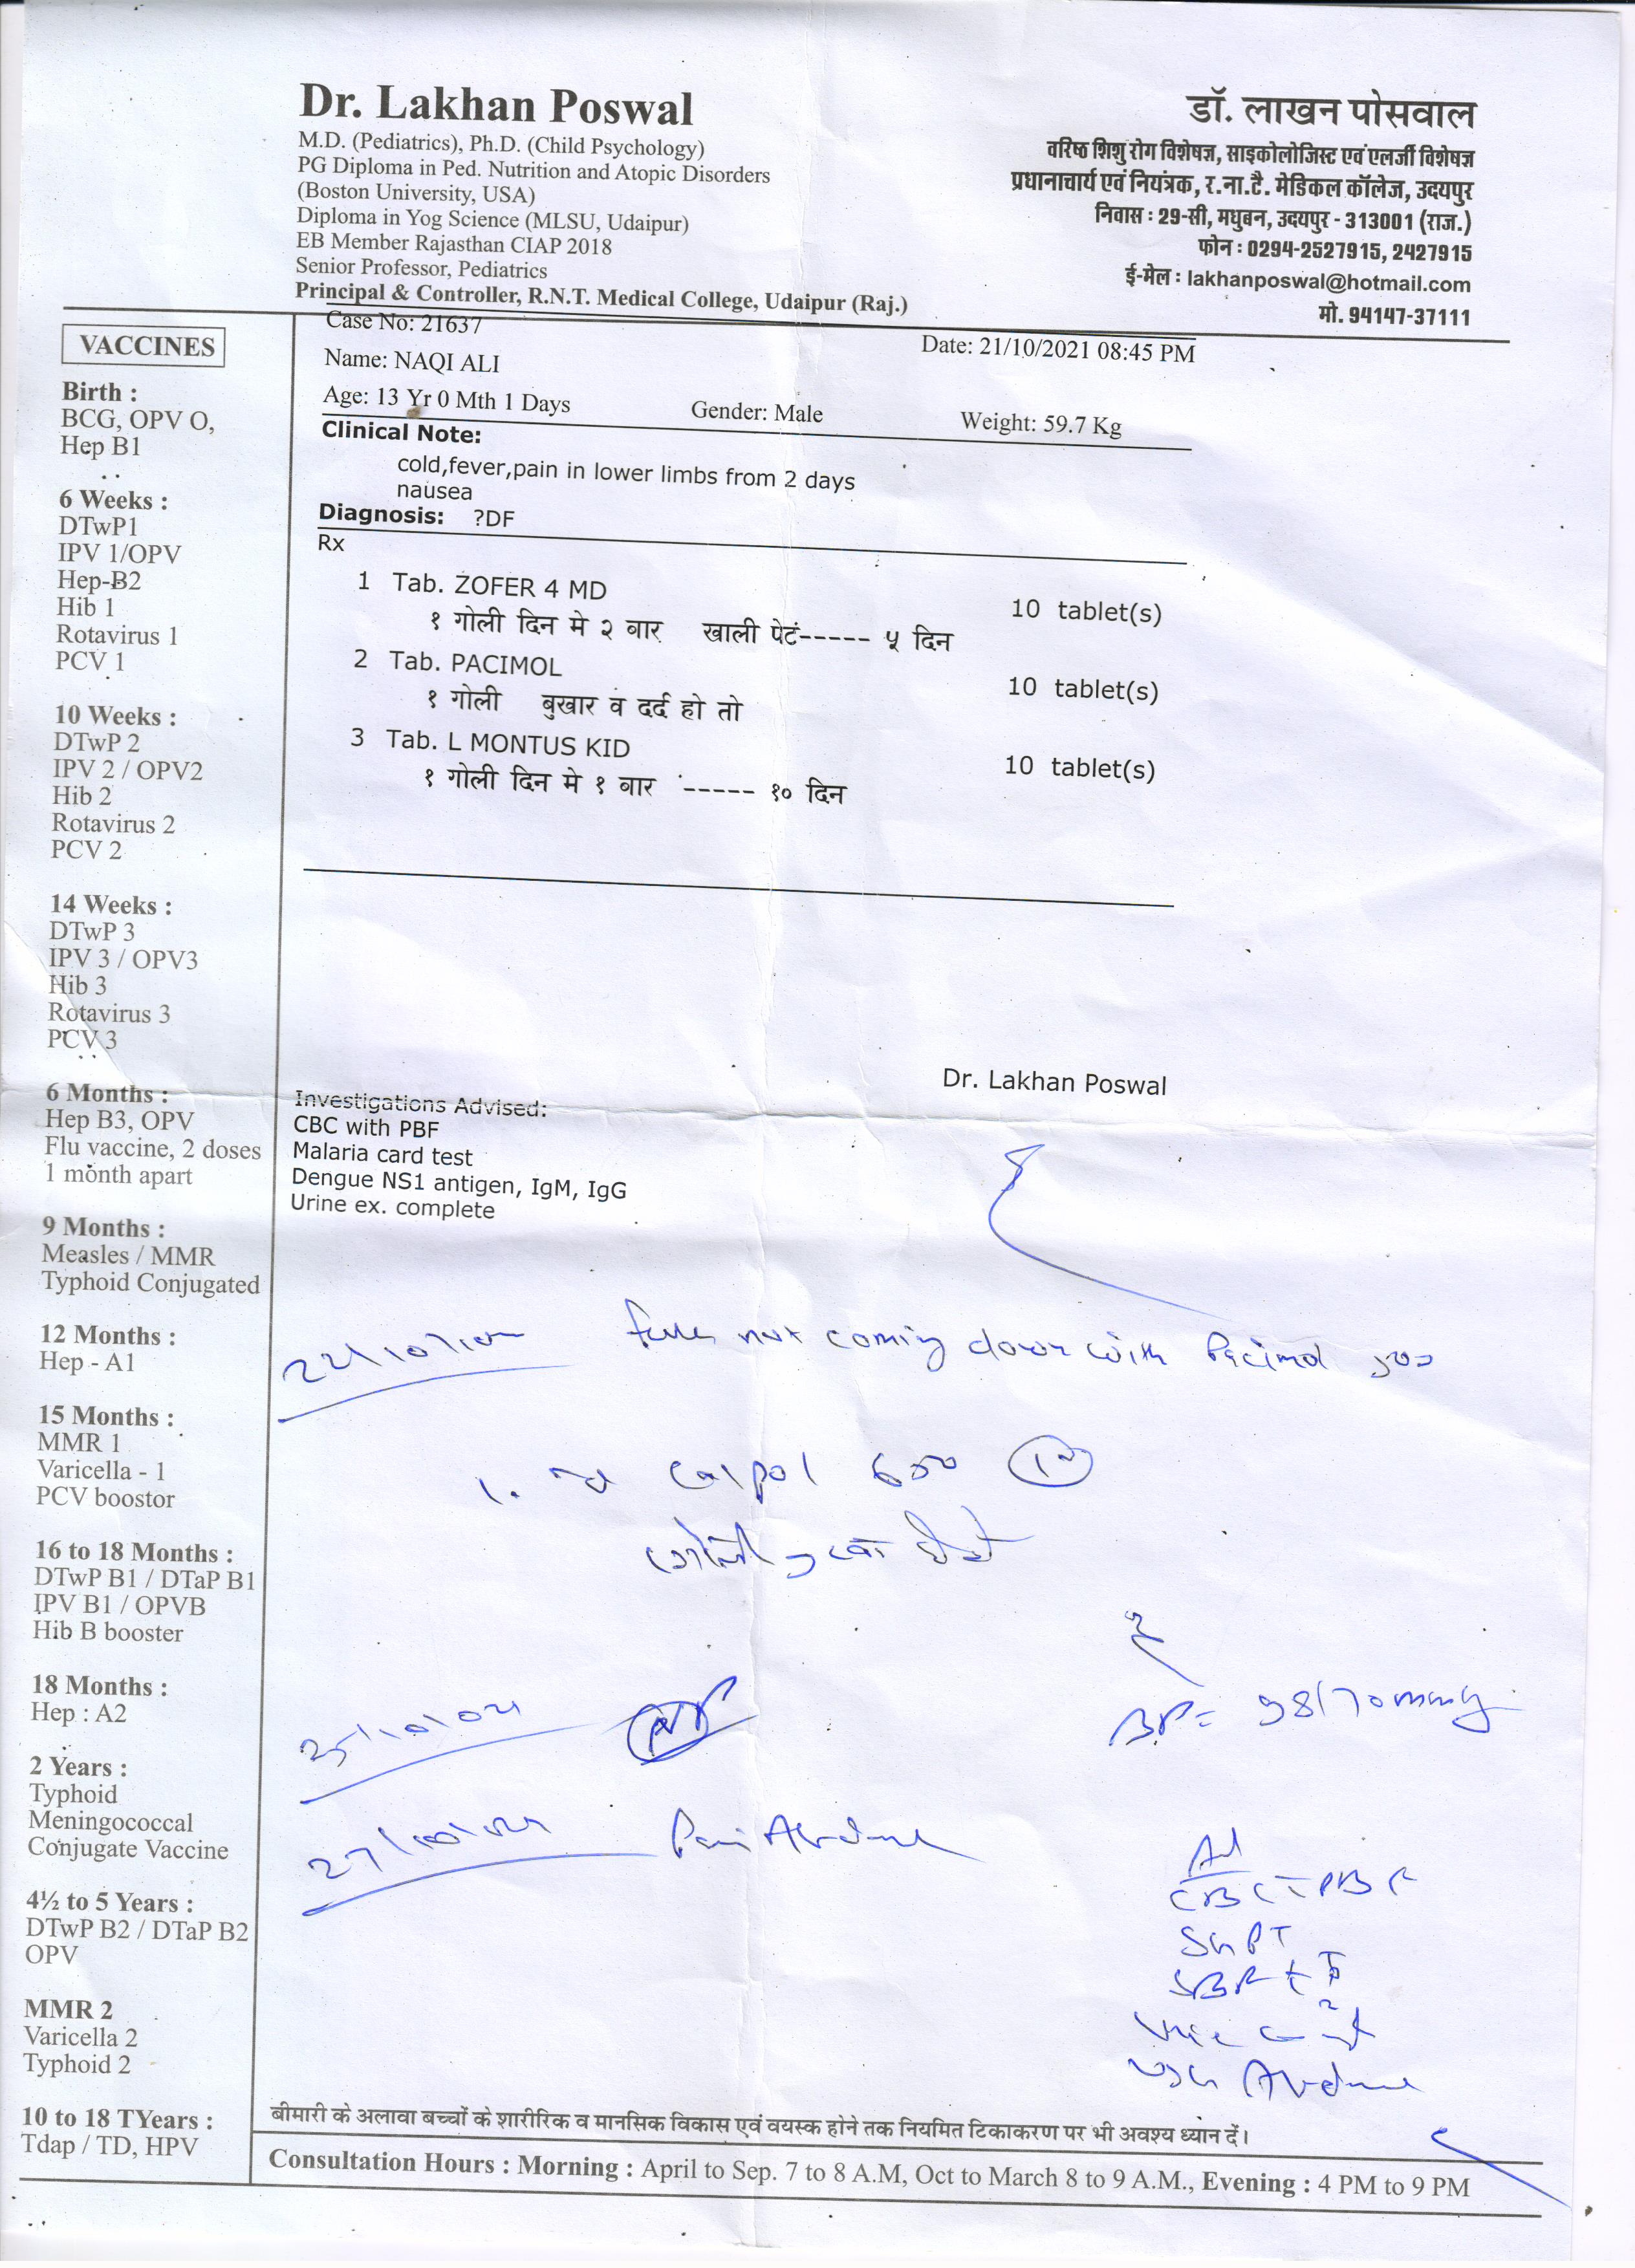 Dr. Lakhan Poswal
M.D. (Pediatrics), Ph.D. (Child Psychology)
PG Diploma in Ped. Nutrition and Atopic Disorders
(Boston University, USA)
Diploma in Yog Science (MLSU, Udaipur)
EB Member Rajasthan CIAP 2018
Senior Professor, Pediatrics
Principal & Controller, R.N.T. Medical College, Udaipur (Raj.)
डॉ. लाखन पोसवाल
वरिष्ठ शिशु रोग विशेषज्ञ, साइकोलोजिस्ट एवं एलर्जी विशेषज्ञ
प्रधानाचार्य एवं नियंत्रक, र.ना.टै. मेडिकल कॉलेज, उदयपुर
निवास : 29-सी, मधुबन, उदयपुर - 313001 (राज.)
फोन : 0294-2527915, 2427915
ई-मेल : lakhanposwal@hotmail.com
मो. 94147-37111
VACCINES
Birth :
BCG, OPV O,
Hep B1
6 Weeks :
DTwP1
IPV 1/OPV
Hep-B2
Hib 1
Rotavirus 1
PCV 1
10 Weeks :
DTwP 2
IPV 2 / OPV2
Hib 2
Rotavirus 2
PCV 2
14 Weeks :
DTwP 3
IPV 3 / OPV3
Hib 3
Rotavirus 3
PCV 3
6 Months :
Hep B3, OPV
Flu vaccine, 2 doses
1 month apart
9 Months :
Measles / MMR
Typhoid Conjugated
12 Months :
Hep - A1
15 Months :
MMR 1
Varicella - 1
PCV boostor
16 to 18 Months :
DTwP B1 / DTaP B1
IPV B1 / OPVB
Hib B booster
18 Months :
Hep : A2
2 Years :
Typhoid
Meningococcal
Conjugate Vaccine
4½ to 5 Years :
DTwP B2 / DTaP B2
OPV
MMR 2
Varicella 2
Typhoid 2
10 to 18 TYears :
Tdap / TD, HPV
Case No: 21637
Date: 21/10/2021 08:45 PM
Name: NAQI ALI
Age: 13 Yr 0 Mth 1 Days Gender: Male Weight: 59.7 Kg
Clinical Note:
cold,fever,pain in lower limbs from 2 days
nausea
Diagnosis: ?DF
Rx
1 Tab. ZOFER 4 MD 10 tablet(s)
१ गोली दिन मे २ वार खाली पेटं----- ५ दिन
2 Tab. PACIMOL 10 tablet(s)
१ गोली बुखार व दर्द हो तो
3 Tab. L MONTUS KID 10 tablet(s)
१ गोली दिन मे १ वार ----- १० दिन
Dr. Lakhan Poswal
Investigations Advised:
CBC with PBF
Malaria card test
Dengue NS1 antigen, IgM, IgG
Urine ex. complete
not coming down with Pacimol
1. Calpol 650 10
25/10/021
BP = 98/70 mmHg
27/10/021 Pain Abdomen
Adv
CBC PBF
SGPT
USG Abdomen
बीमारी के अलावा बच्चों के शारीरिक व मानसिक विकास एवं वयस्क होने तक नियमित टिकाकरण पर भी अवश्य ध्यान दें।
Consultation Hours : Morning : April to Sep. 7 to 8 A.M, Oct to March 8 to 9 A.M., Evening : 4 PM to 9 PM